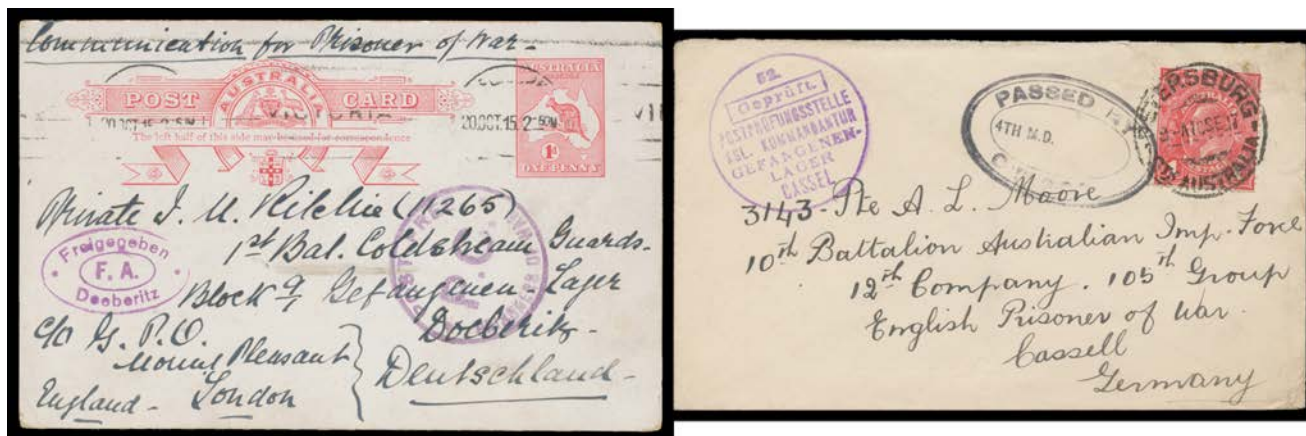 Communication for Prisoner of War-
AUSTRALIA
POST CARD
The left half of this side may be used for correspondence
VICTORIA
20OCT.15.2-
AUSTRALIA
1D
ONE PENNY
Private J. U. Ritchie (11265)
1st Bal. Coldstream Guards-
Block 9 Gefangenen-Lager
Doeberitz-
Deutschland-
Freigegeben
F. A.
Doeberitz
c/o G. P. O.
Mount Pleasant
London
England-
52.
Geprüft.
POSTPRÜFUNGSSTELLE
KGL. KOMMANDANTUR
GEFANGENEN-
LAGER
CASSEL
PASSED BY
4TH M.D.
PETERSBURG
STH AUSTRALIA
3143-Pte A. L. Moore
10th Battalion Australian Imp. Force
12th Company. 105th Group
English Prisoner of War.
Cassell
Germany